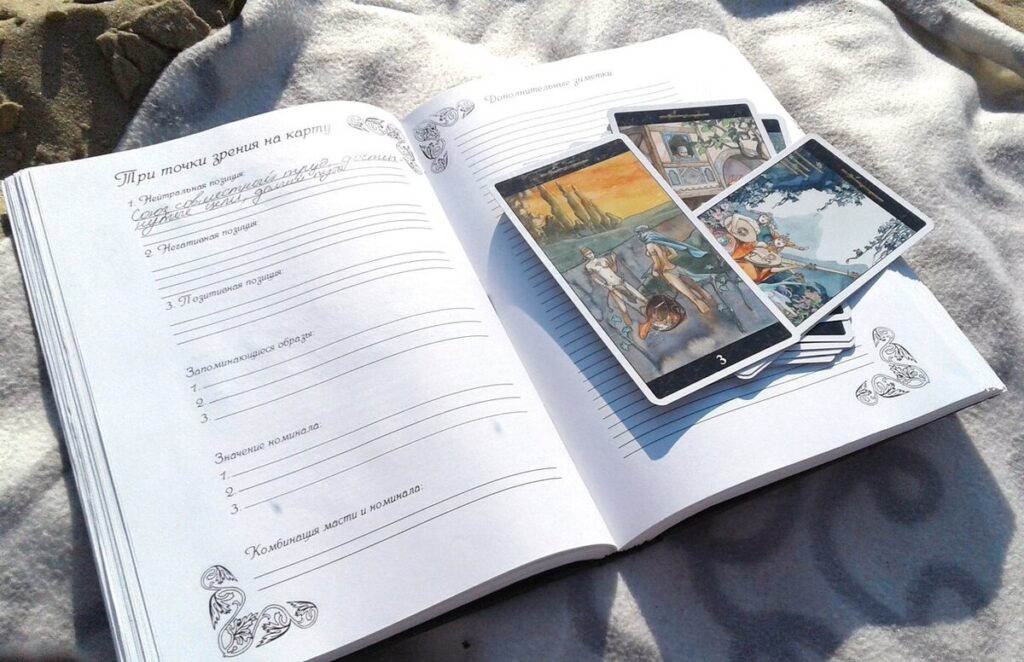 Три точки зрения на карту
1. Нейтральная позиция
Союз совместный труд, достиг
2. Негативная позиция
3. Позитивная позиция:
Запоминающиеся образы:
1.
2.
3.
Значение номинала:
1.
2.
3.
Комбинация масти и номинала:
Дополнительные заметки
3